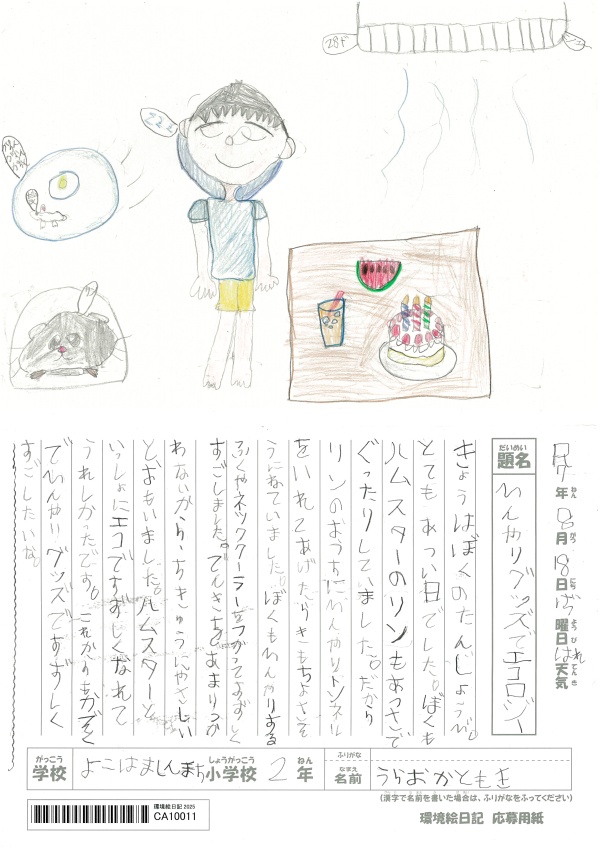 28ド
222
題名
だいめい
ひんやりグッズでエコロジー
R7年8月18日げつ曜日はれ天気
ねん
がつ
にち
ようび
てんき
きょうはぼくのたんじょうび。
とてもあつい日でした。ぼくも
ハムスターのリンもあつさで
ぐったりしていました。だから
リンのおうちにひんやりトンネル
をいれてあげたらきもちよさそ
うにねていました。ぼくもひんやりする
ふくやネッククーラーをつかってすずしく
すごしました。でんきをあまりつか
わないから、ちきゅうにやさしい
とおもいました。ハムスターと
いっしょにエコですずしくなれて
うれしかったです。これからもかぞく
でひんやりグッズですずしく
すごしたいな。
がっこう
学校
よこはましんまち小学校
しょうがっこう
2年
ねん
ふりがな
なまえ
名前
うらおかともき
(漢字で名前を書いた場合は、ふりがなをふってください)
環境絵日記 2025
CA10011
環境絵日記 応募用紙